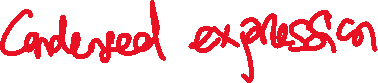 Condensed expression